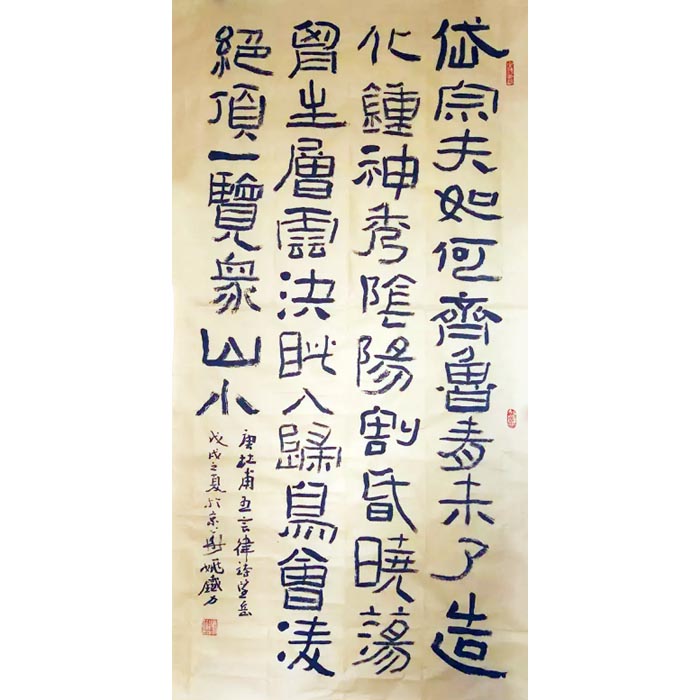 岱宗夫如何齊魯青未了造
化鍾神秀陰陽割昏曉蕩
胷生層雲決眦入歸鳥會凌
絕頂一覽衆山小
唐杜甫五言律詩望岳
戊戌之夏於京姚鐵力